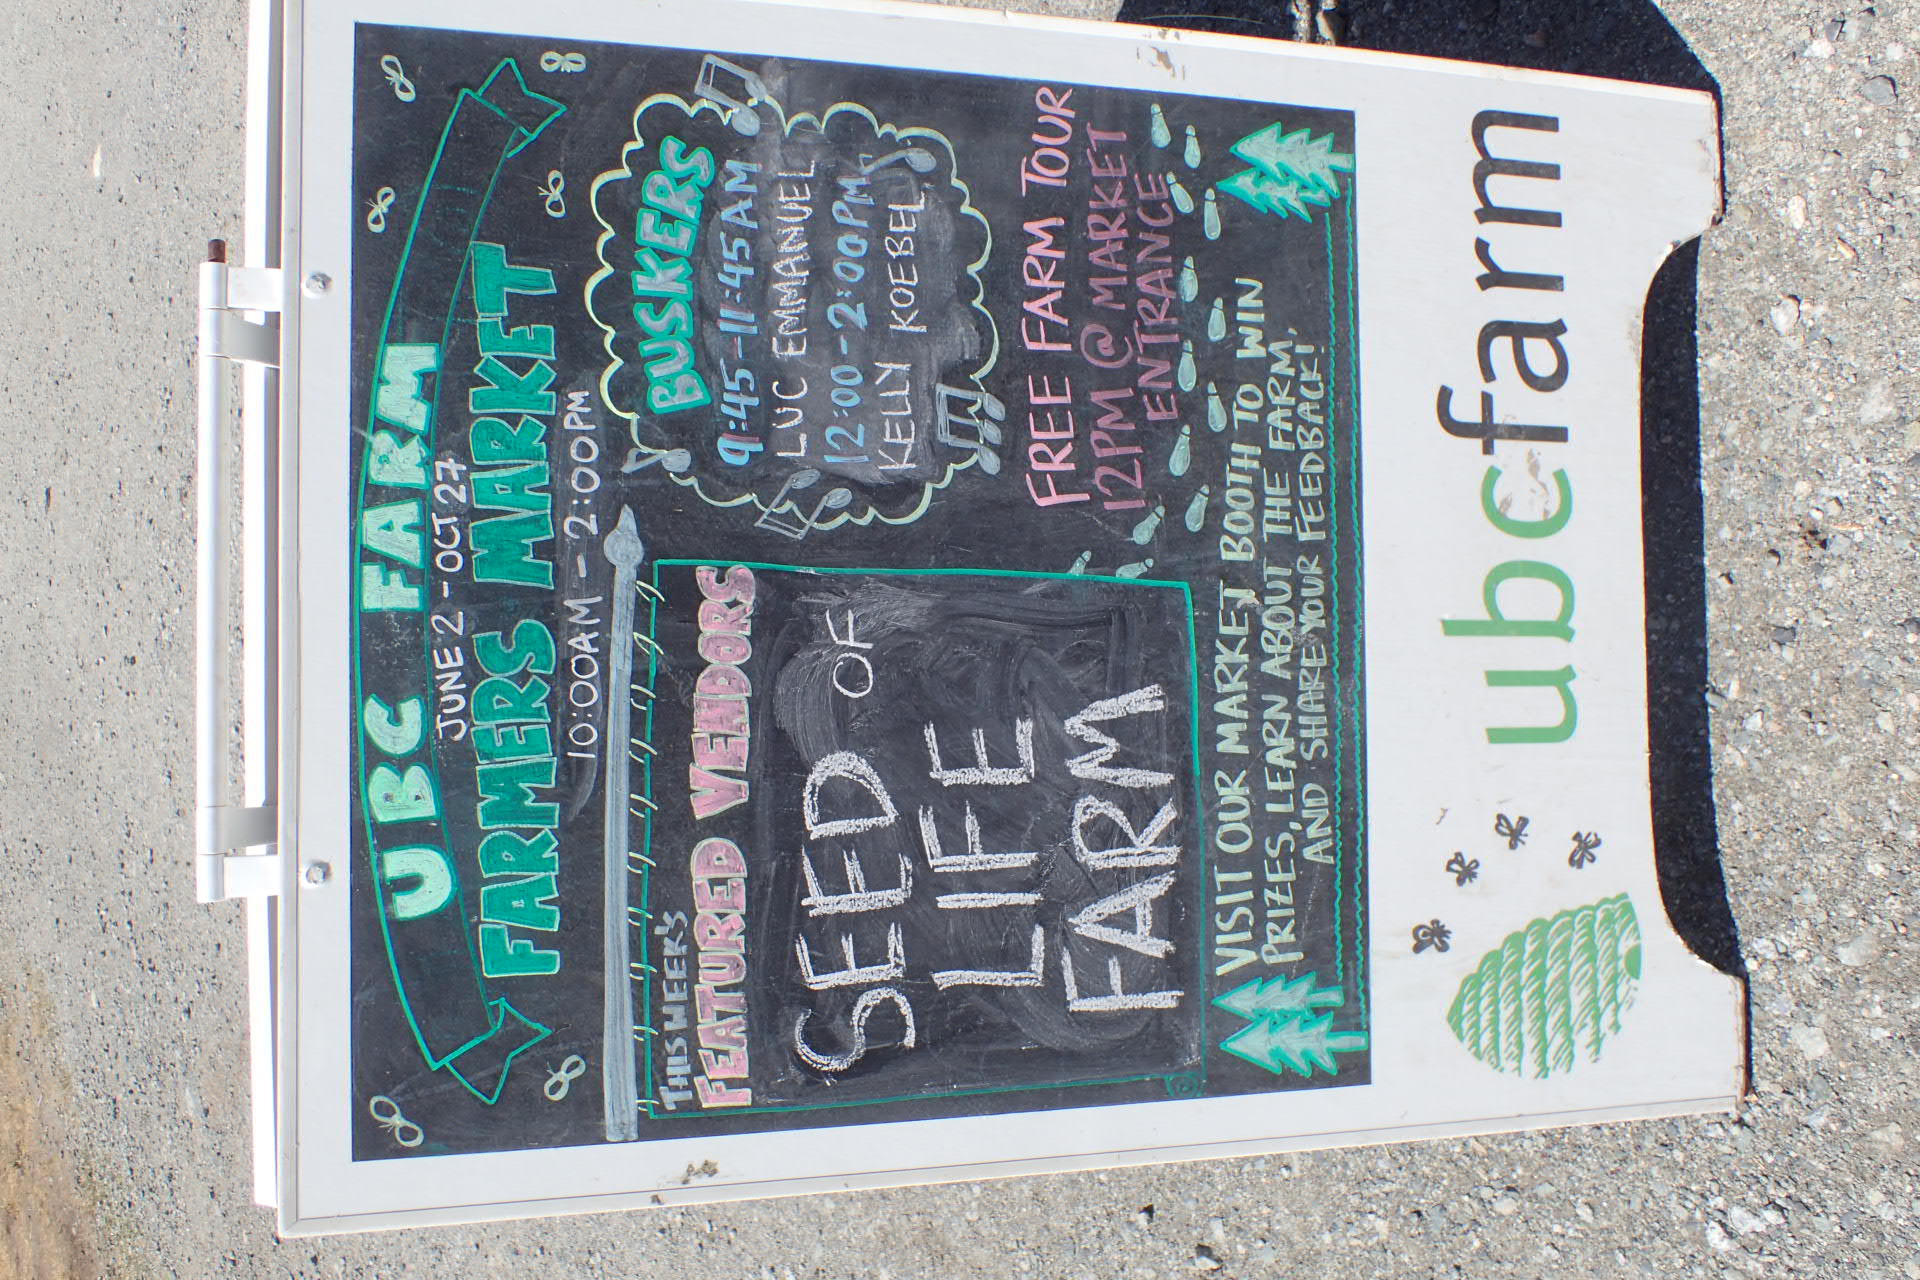 UBC FARM
JUNE 2 - OCT 27
FARMERS MARKET
10:00AM - 2:00PM
THIS WEEK'S
FEATURED VENDORS
SEED OF
LIFE
FARM
BUSKERS
9:45-11:45AM
LUC EMMANUEL
12:00-2:00PM
KELLY KOEBEL
FREE FARM TOUR
12PM @ MARKET
ENTRANCE
VISIT OUR MARKET BOOTH TO WIN
PRIZES, LEARN ABOUT THE FARM,
AND SHARE YOUR FEEDBACK!
ubcfarm